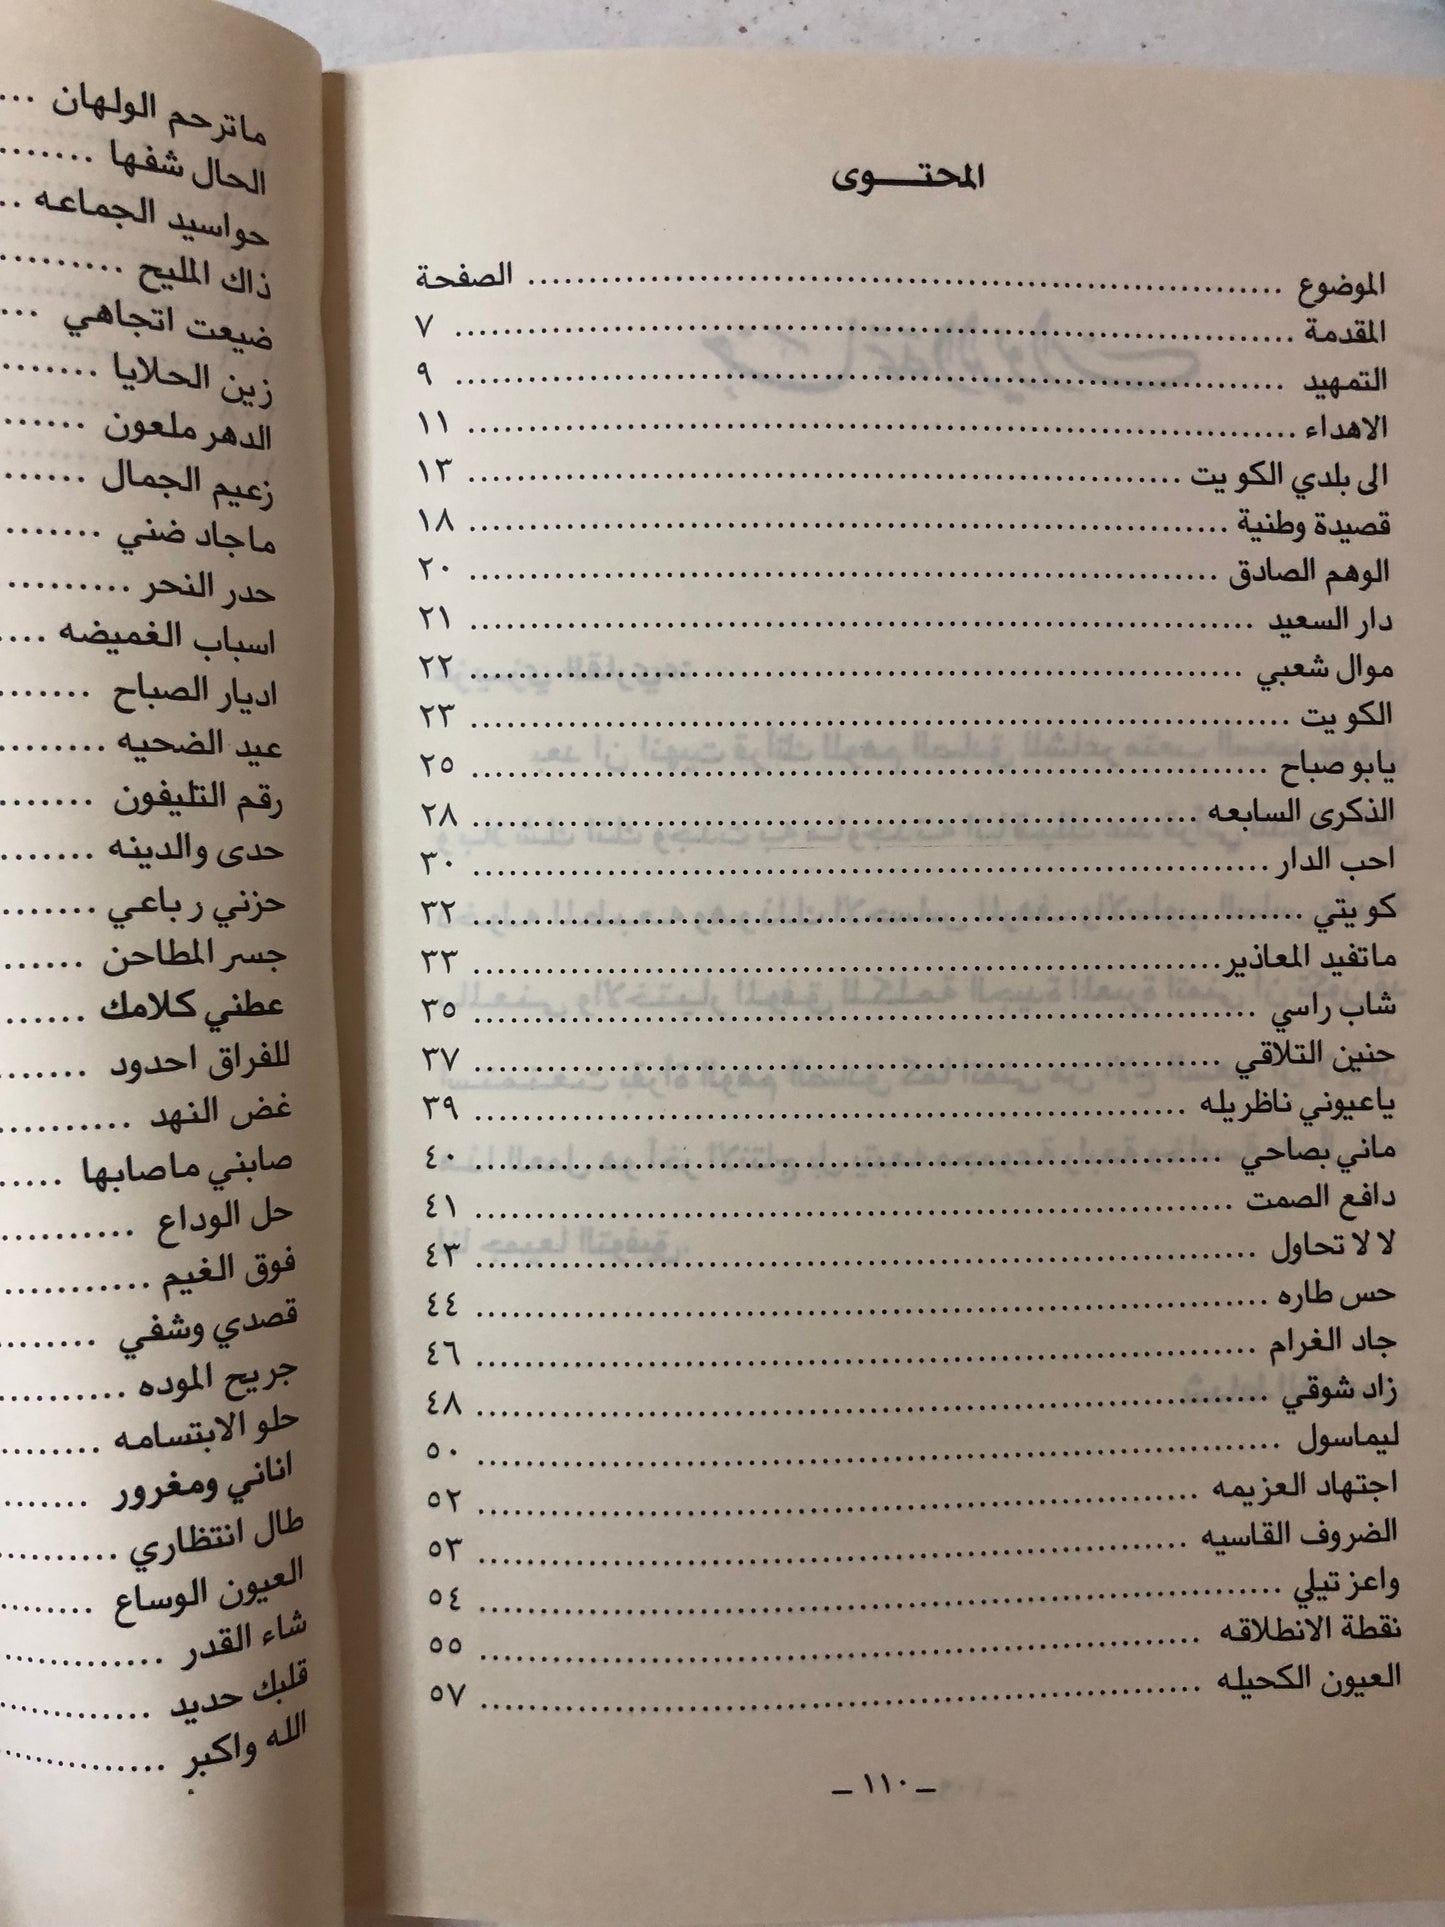 المحتـــوى
الموضوع ........ الصفحة
المقدمة ........ ٧
التمهيد ........ ٩
الاهداء ........ ١١
الى بلدي الكويت ........ ١٣
قصيدة وطنية ........ ١٨
الوهم الصادق ........ ٢٠
دار السعيد ........ ٢١
موال شعبي ........ ٢٢
الكويت ........ ٢٣
يابو صباح ........ ٢٥
الذكرى السابعه ........ ٢٨
احب الدار ........ ٣٠
كويتي ........ ٣٢
ماتفيد المعاذير ........ ٣٣
شاب راسي ........ ٣٥
حنين التلاقي ........ ٣٧
ياعيوني ناظريله ........ ٣٩
ماني بصاحي ........ ٤٠
دافع الصمت ........ ٤١
لا لا تحاول ........ ٤٣
حس طاره ........ ٤٤
جاد الغرام ........ ٤٦
زاد شوقي ........ ٤٨
ليماسول ........ ٥٠
اجتهاد العزيمه ........ ٥٢
الضروف القاسيه ........ ٥٣
واعز تيلي ........ ٥٤
نقطة الانطلاقه ........ ٥٥
العيون الكحيله ........ ٥٧
ــ ١١٠ ــ
ماترحم الولهان ...
الحال شفها ........
حواسيد الجماعه ..
ذاك المليح ........
ضيعت اتجاهي ...
زين الحلايا ........
الدهر ملعون ......
زعيم الجمال ......
ماجاد ضني .......
حدر النحر ........
اسباب الغميضه ....
اديار الصباح ......
عيد الضحيه ........
رقم التليفون ......
حدى والدينه .......
حزني رباعي .......
جسر المطاحن ......
عطني كلامك ......
للفراق احدود ......
غض النهد ........
صابني ماصابها .....
حل الوداع ........
فوق الغيم ........
قصدي وشفي ......
جريح الموده ........
حلو الابتسامه .......
اناني ومغرور ......
طال انتظاري ........
العيون الوساع ......
شاء القدر ........
قلبك حديد ........
الله واكبر ........